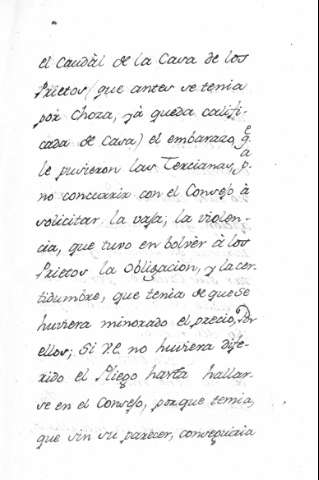 el Caudàl de la Casa de los
Prietos (que antes se tenia
por Choza, yà queda califi-
cada de Casa) el embarazo, q.e
le pusieron las Tercianas, p.a
no concurrir con el Consejo à
solicitar la vaja; la violen-
cia, que tuvo en bolvèr à los
Prietos la obligacion, y la cer-
tidumbre, que tenia de que se
huviera minorado el precio, Por
ellos; Si V.E. no huviera dife-
rido el Pliego hasta hallar-
se en el Consejo, porque temia,
que sin su parecer, conseguiria